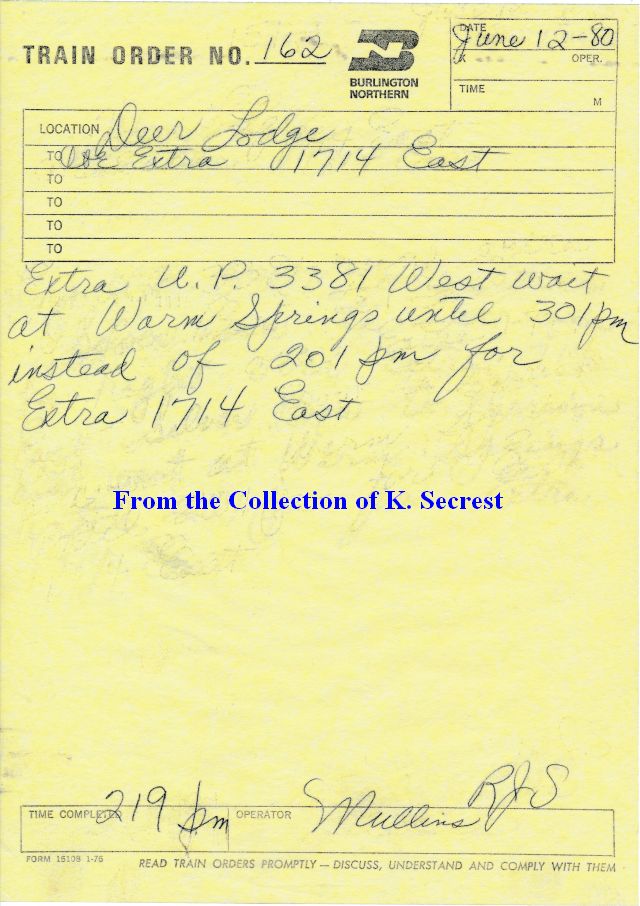 TRAIN ORDER NO. 162
BURLINGTON
NORTHERN
DATE
June 12-80
X OPER.
TIME
M
LOCATION Deer Lodge
TO Extra 1714 East
TO
TO
TO
TO
Extra U.P. 3381 West wait
at Warm Springs until 301 pm
instead of 201 pm for
Extra 1714 East
From the Collection of K. Secrest
RJS
TIME COMPLETED 219 pm OPERATOR Mullins
FORM 15108 1-76 READ TRAIN ORDERS PROMPTLY — DISCUSS, UNDERSTAND AND COMPLY WITH THEM